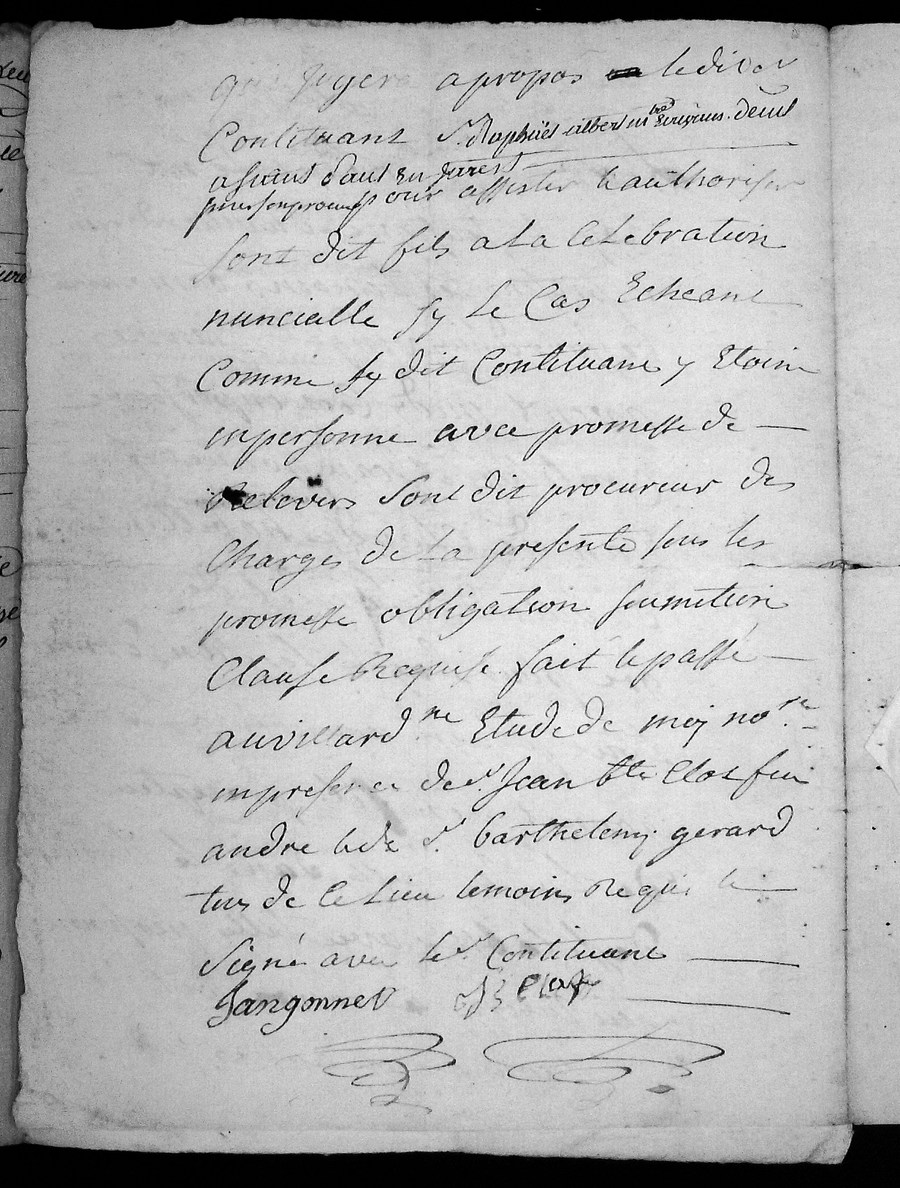 qui jugera a propos ledit sr
Contituant Sr. Raphael albert mtre chirurgiens. demt
a St paul En Jarest
pour son procur pour assister & authoriser
sont dit fils a la Celebration
nuncialle sy Le Cas Echeant
Comme sy dit Contituant y Etoin
inpersonne avec promesse de
Relevers sont dit procureur des
Charges de La presente sous les
promesse obligation soumition
Clause Requise fait & passé
auvillard Etude de moy nore
inpresence de sr. Jean bte Clot feu
andre & de sr barthelemy gerard
tous de Ce Lieu temoins Requis &
Signé avec le sr. Contituant
Jangonnet Clot